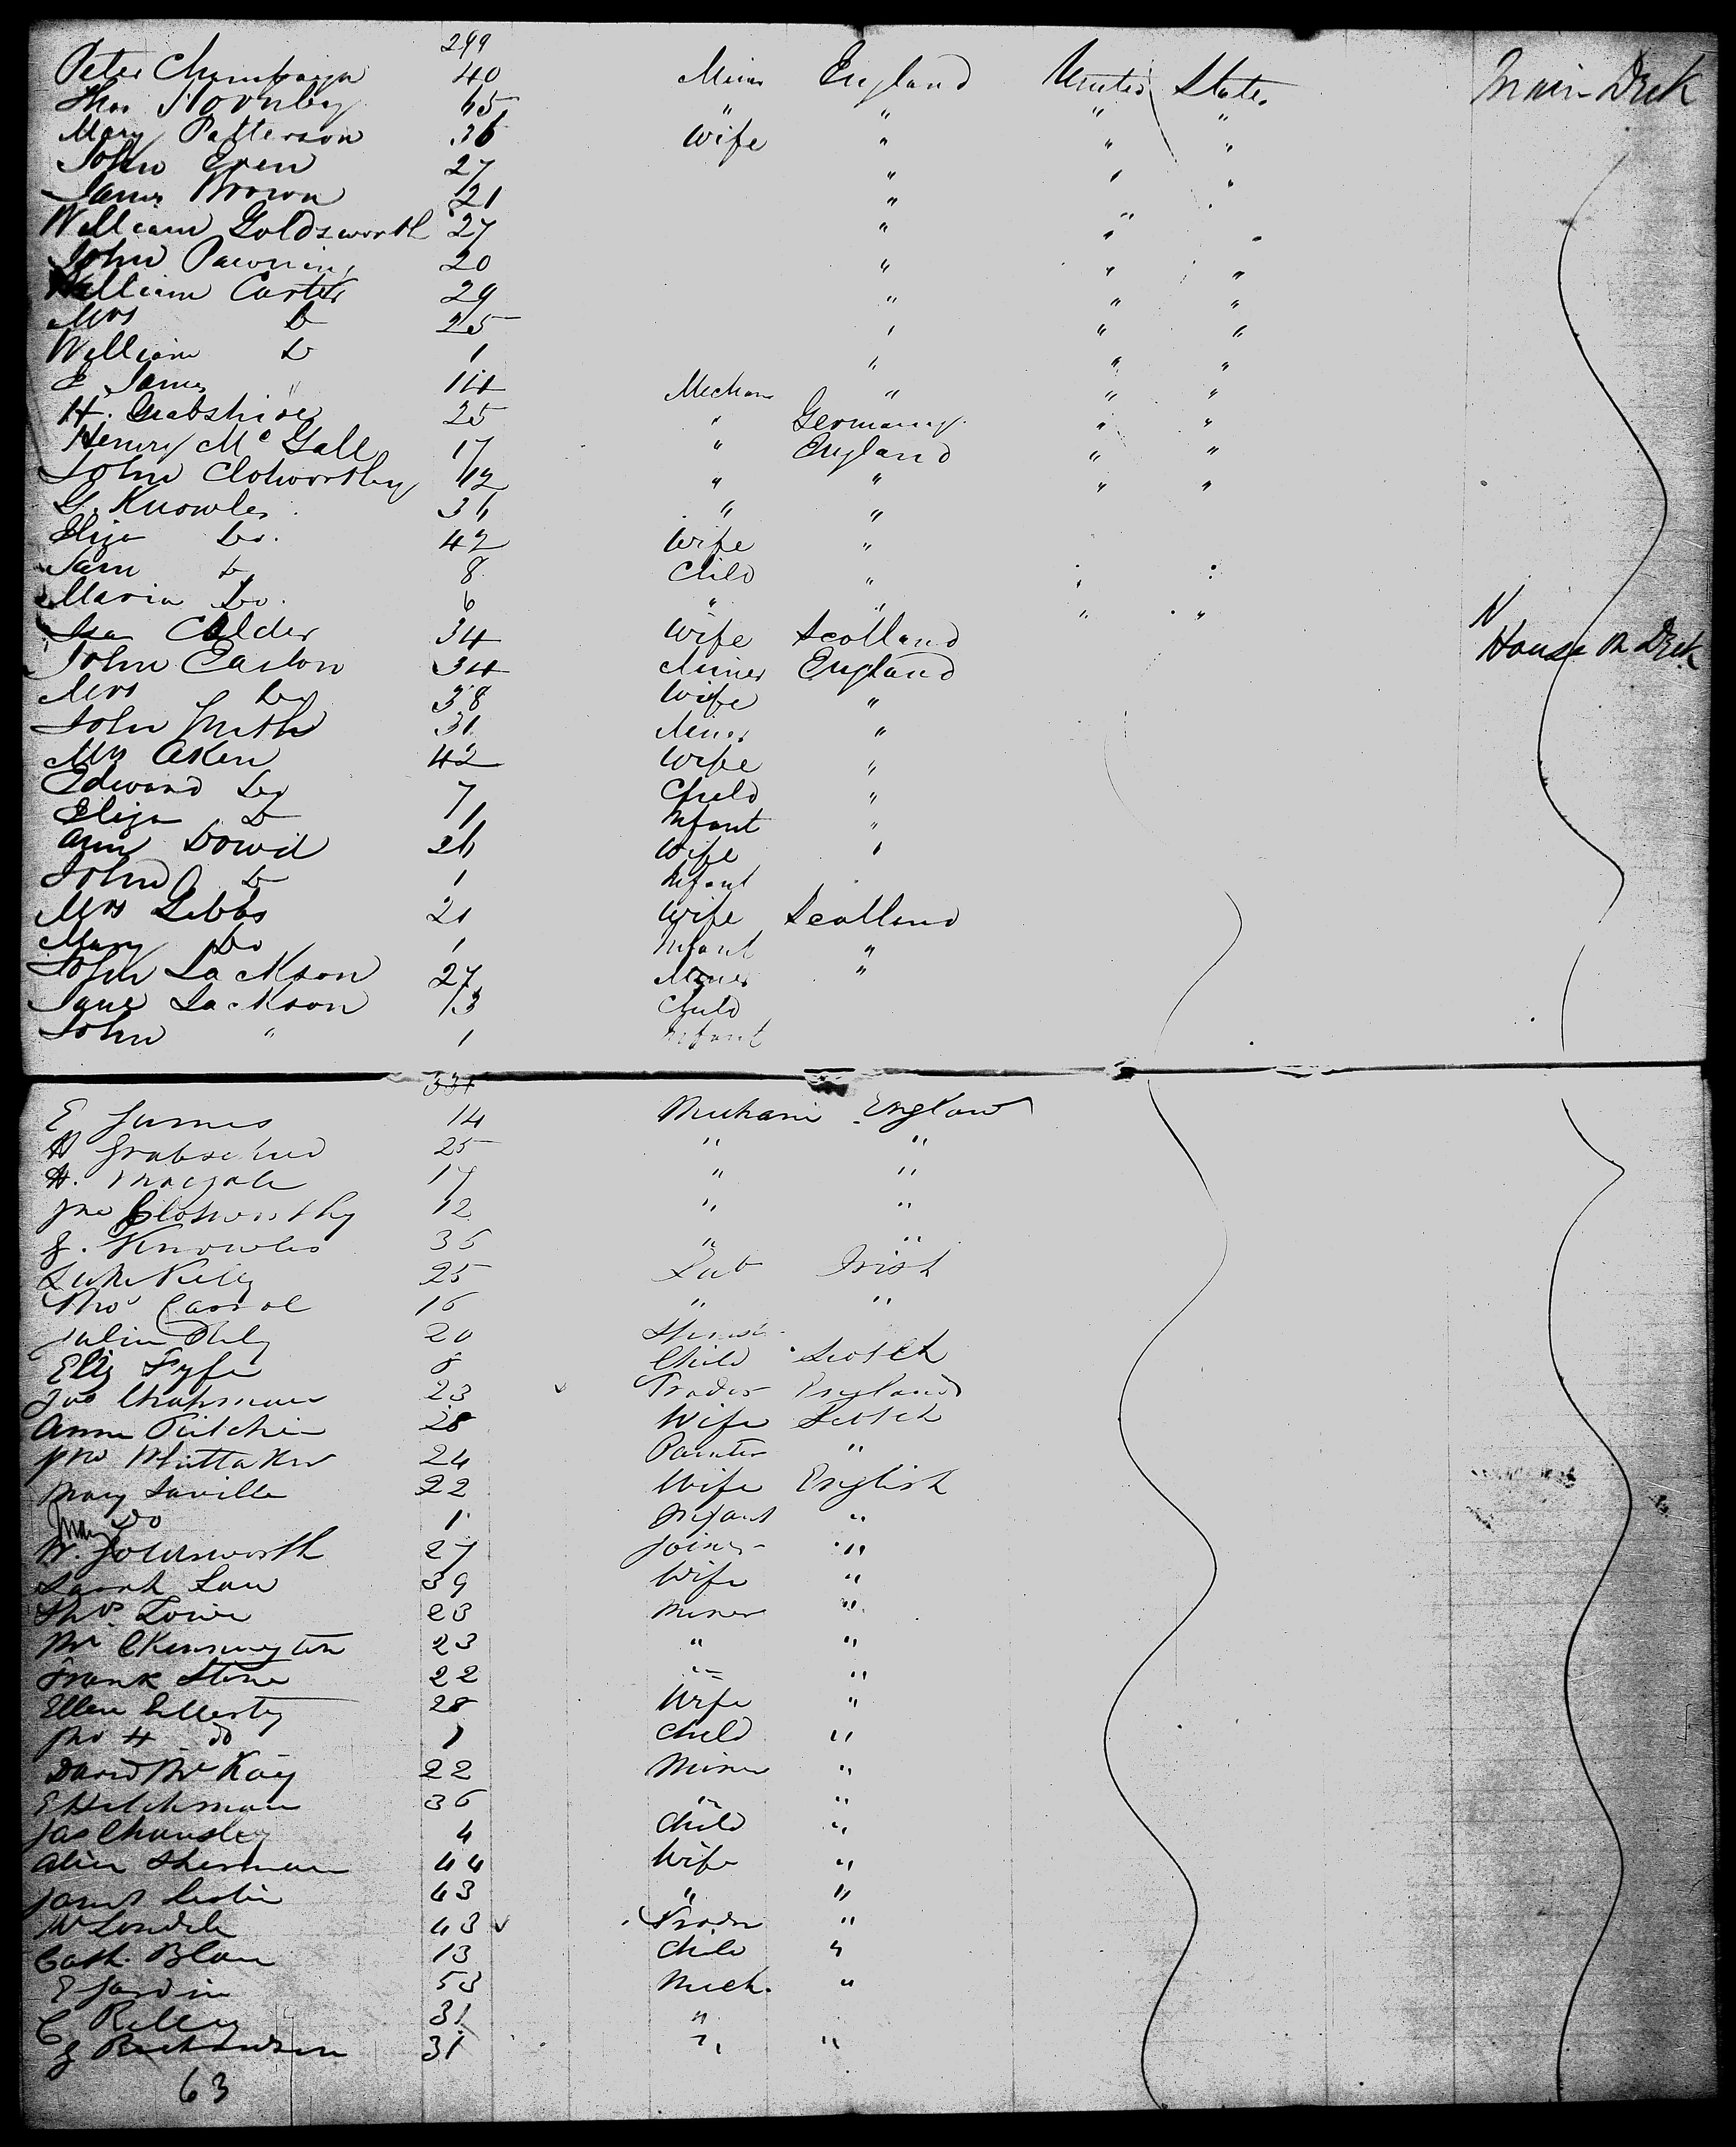 299
Peter Champaign 40 Miner England United States Main Deck
Thos Hornby 45 " " " "
Mary Patterson 36 Wife " " "
John Even 27 " " "
James Brown 21 "
William Goldsworth 27 " " "
John Pawning 20 " " "
William Carter 29 " " "
Mrs Do 25 " " "
William Do 1 " " "
E James 14 Mechan " " "
H. Grabshire 25 " Germany " "
Henry McGall 17 " England " "
John Clotworthy 12 " " " "
G. Knowles 36 " "
Eliza Do. 42 Wife "
Sam Do 8 Child "
Maria Do. 6 " " " "
Isa Calder 34 Wife Scotland House on Deck
John Easton 34 Miner England
Mrs Do 38 Wife "
John Smith 31 Miner "
Mrs Aken 42 Wife "
Edward Do 7 Child "
Eliza Do 1 Infant "
Ann Dowd 26 Wife "
John Do 1 Infant
Mrs Gibbs 21 Wife Scotland
Mary Do 1 Infant "
John Jackson 27 Miner "
Jane Jackson 3 Child
John " 1 Infant
331
E James 14 Mechani England
H Grabschied 25 " "
H. Macgale 17 " "
Jno Clotworthy 12 " "
G. Knowles 35 " "
Luke Kelly 25 Lab Irish
Thos Carrol 16 " "
Julia Rely 20 Spinst
Eliz Fyfe 8 Child Scotch
Jas Chapman 23 Trader England
Anna Ritchie 28 Wife Scotch
Jno Whittaker 24 Painter "
Mary Saville 22 Wife English
Mary Do 1 Infant "
W. Goldsworth 27 Joiner "
Sarah Law 39 Wife "
Thos Lowe 23 Miner "
Wm Kennington 23 " "
Frank Stone 22 " "
Ellen Ellerby 28 Wife "
Jno H do 1 Child "
David McKay 22 Miner "
E Hitchman 36 " "
Jas Chansley 4 Child "
Alice Sherman 44 Wife "
Janet Leslie 43 " "
W Lonsdale 43 Trader "
Cath. Blain 13 Child "
E Jardin 53 Mech. "
C Rilley 31 "
G Richardson 31 " "
63